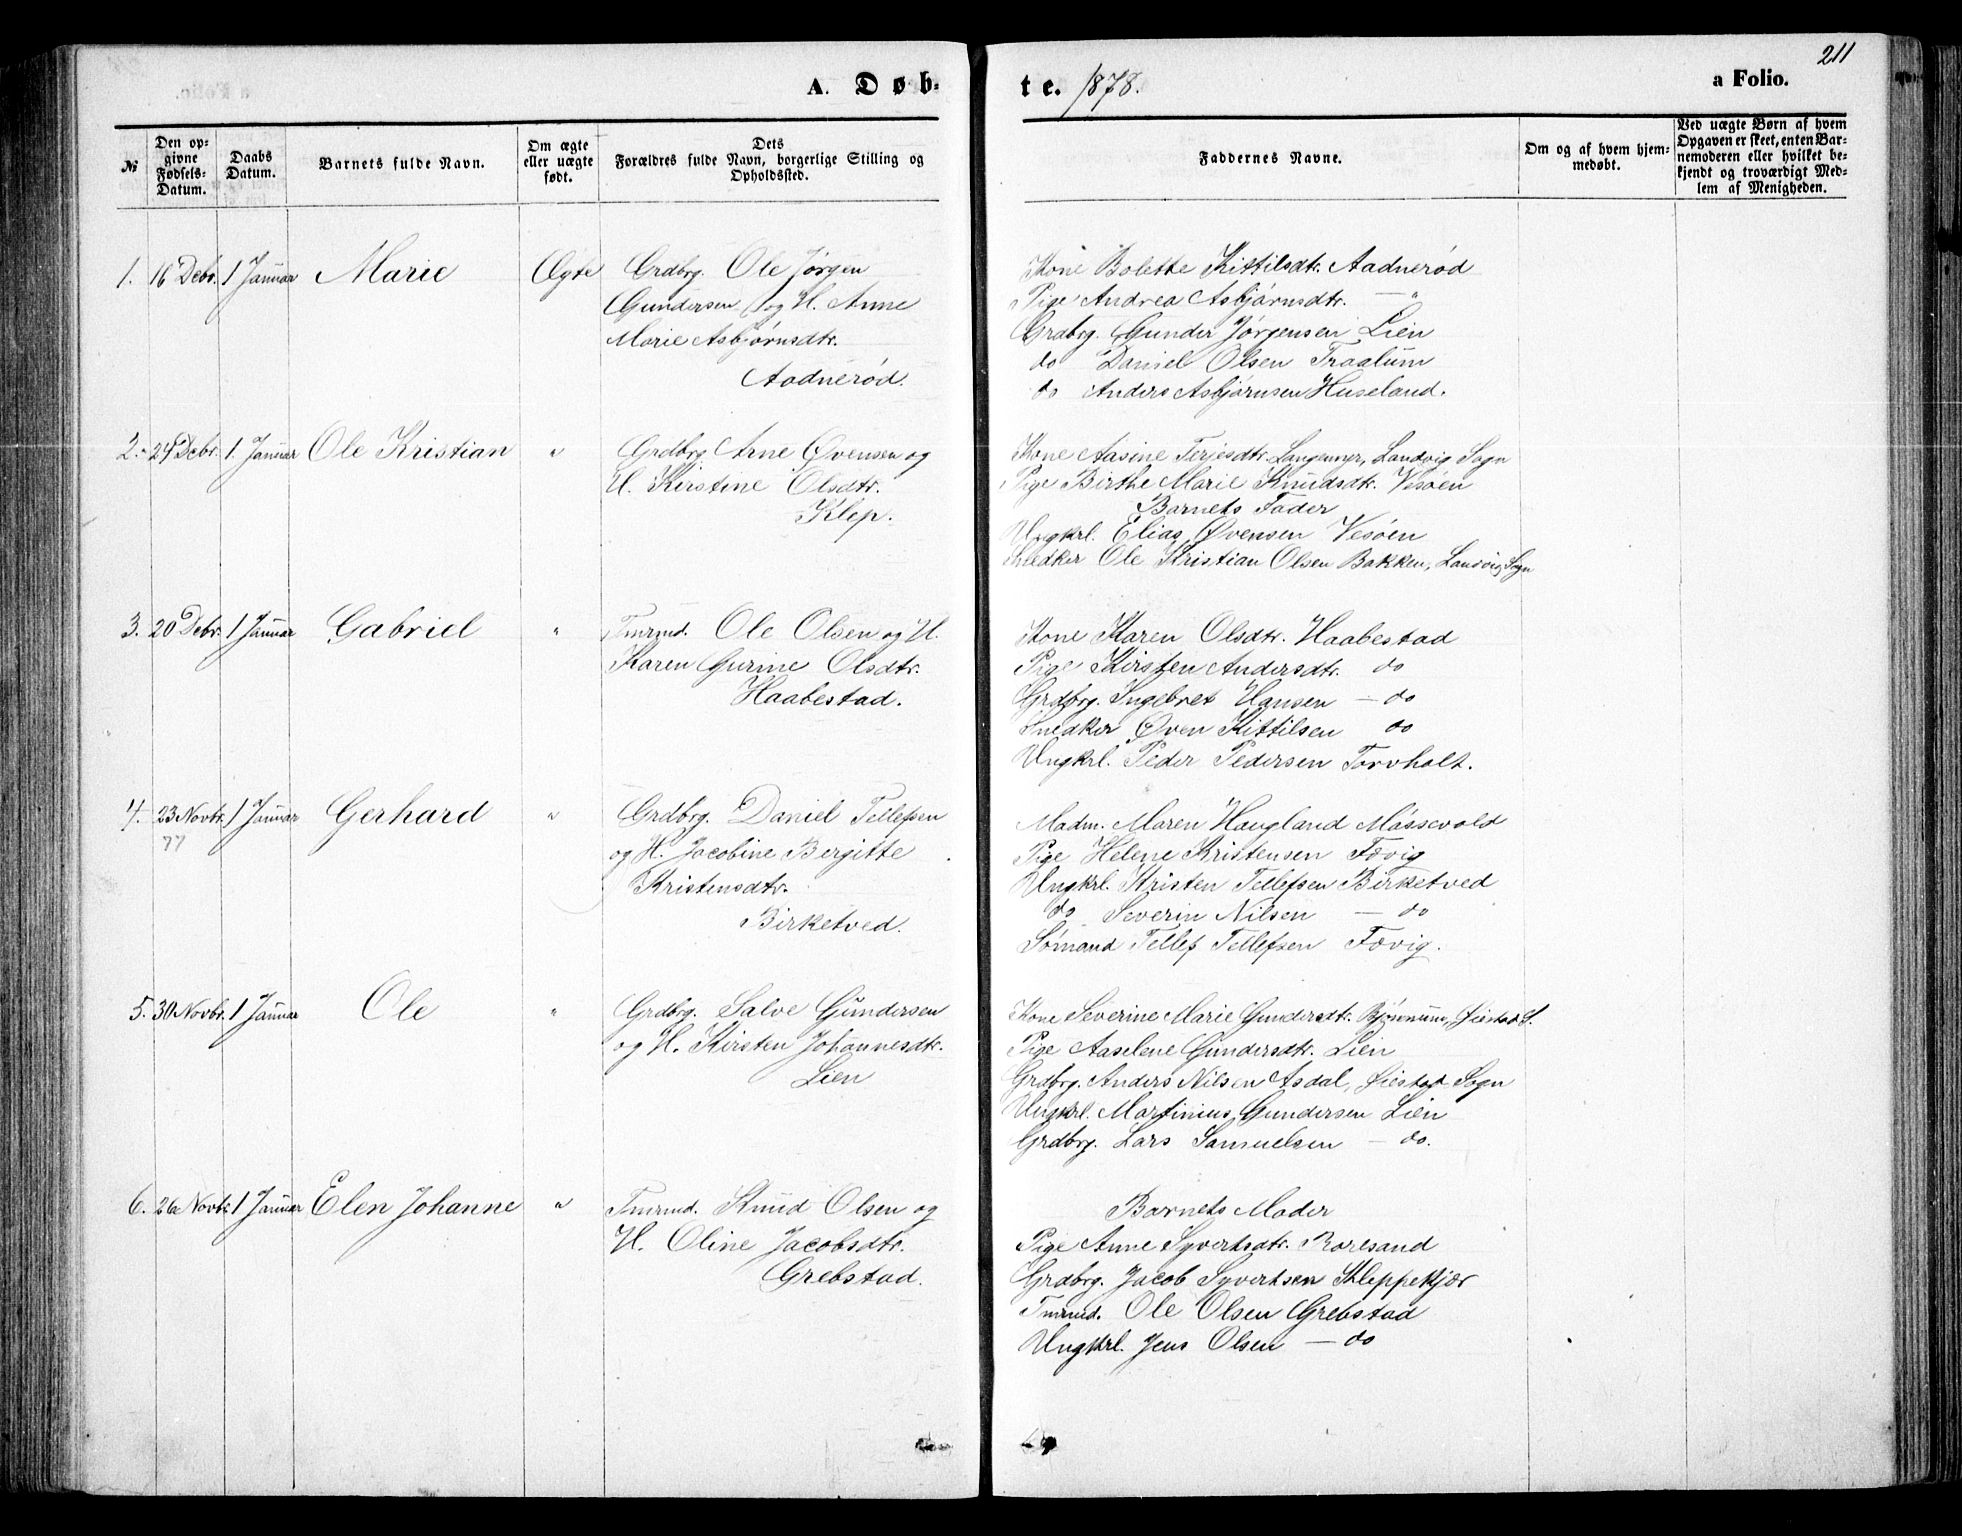 211
A. Døb-
te. 1878.
a Folio.
№
Den op-
givne
Fødsels-
Datum.
Daabs
Datum.
Barnets fulde Navn.
Om ægte
eller uægte
født.
Dets
Forældres fulde Navn, borgerlige Stilling og
Opholdssted.
Faddernes Navne.
Om og af hvem hjem-
medøbt.
Ved uægte Børn af hvem
Opgaven er skeet, enten Bar-
nemoderen eller hvilket be-
kjendt og troværdigt Med-
lem af Menigheden.
1. 16 Debr. 1 Januar Marie Ægte Grdbrg. Ole Jørgen
Gundersen og H. Anne
Marie Asbjørnsdtr.
Aadnerød.
Kone Bolette Kittilsdtr. Aadnerød
Pige Andrea Asbjørnsdtr. — "
Grdbrg. Gunder Jørgensen Lien
do Daniel Olsen Traalum
do Anders Asbjørnsen Huseland.
2. 24 Debr. 1. Januar Ole Kristian " Grdbrg Arne Øvensen og
H. Kirstine Olsdtr.
Klep.
Kone Aasine Terjesdtr. Langemyr, Landvig Sogn
Pige Birthe Marie Knudsdtr. Vesøen
Barnets Fader
Ungkrl. Elias Øvensen Vesøen
Snedker Ole Kristian Olsen Bakken, Landvig Sogn
3. 20 Debr. 1 Januar Gabriel " Tmrmd. Ole Olsen og H.
Karen Gurine Olsdtr.
Haabestad.
Kone Karen Olsdtr. Haabestad
Pige Kirsten Andersdtr. do
Grdbrg. Ingebret Hansen — do
Snedker Øven Kittilsen do
Ungkrl. Peder Pedersen Torvholt.
4. 23 Novbr. 1 Januar Gerhard " Grdbrg. Daniel Tellefsen
77
og H. Jacobine Bergitte
Kristensdtr.
Birketved.
Madm. Maren Haugland Møssevold
Pige Helene Kristensen Fævig
Ungkrl. Kristen Tellefsen Birketved
do Severin Nilsen — do
Sømand Tellef Tellefsen Fævig.
5. 30 Novbr. 1 Januar Ole " Grdbrg. Salve Gundersen
og H. Kirsten Johannesdtr.
Lien
Kone Severine Marie Gundersdtr. Bjørnum, Øiestad S.
Pige Aaselene Gundersdtr. Lien
Grdbrg. Anders Nilsen Asdal, Øiestad Sogn
Ungkrl. Martinius Gundersen Lien
Grdbrg. Lars Samuelsen — do.
6. 26 Novbr. 1 Januar Elen Johanne " Tmrmd. Knud Olsen og
H. Oline Jacobsdtr.
Grebstad.
Barnets Moder
Pige Anne Syvertsdtr. Roresand
Grdbrg. Jacob Syvertsen Kleppekjær
Tmrmd. Ole Olsen Grebstad
Ungkrl. Jens Olsen — do